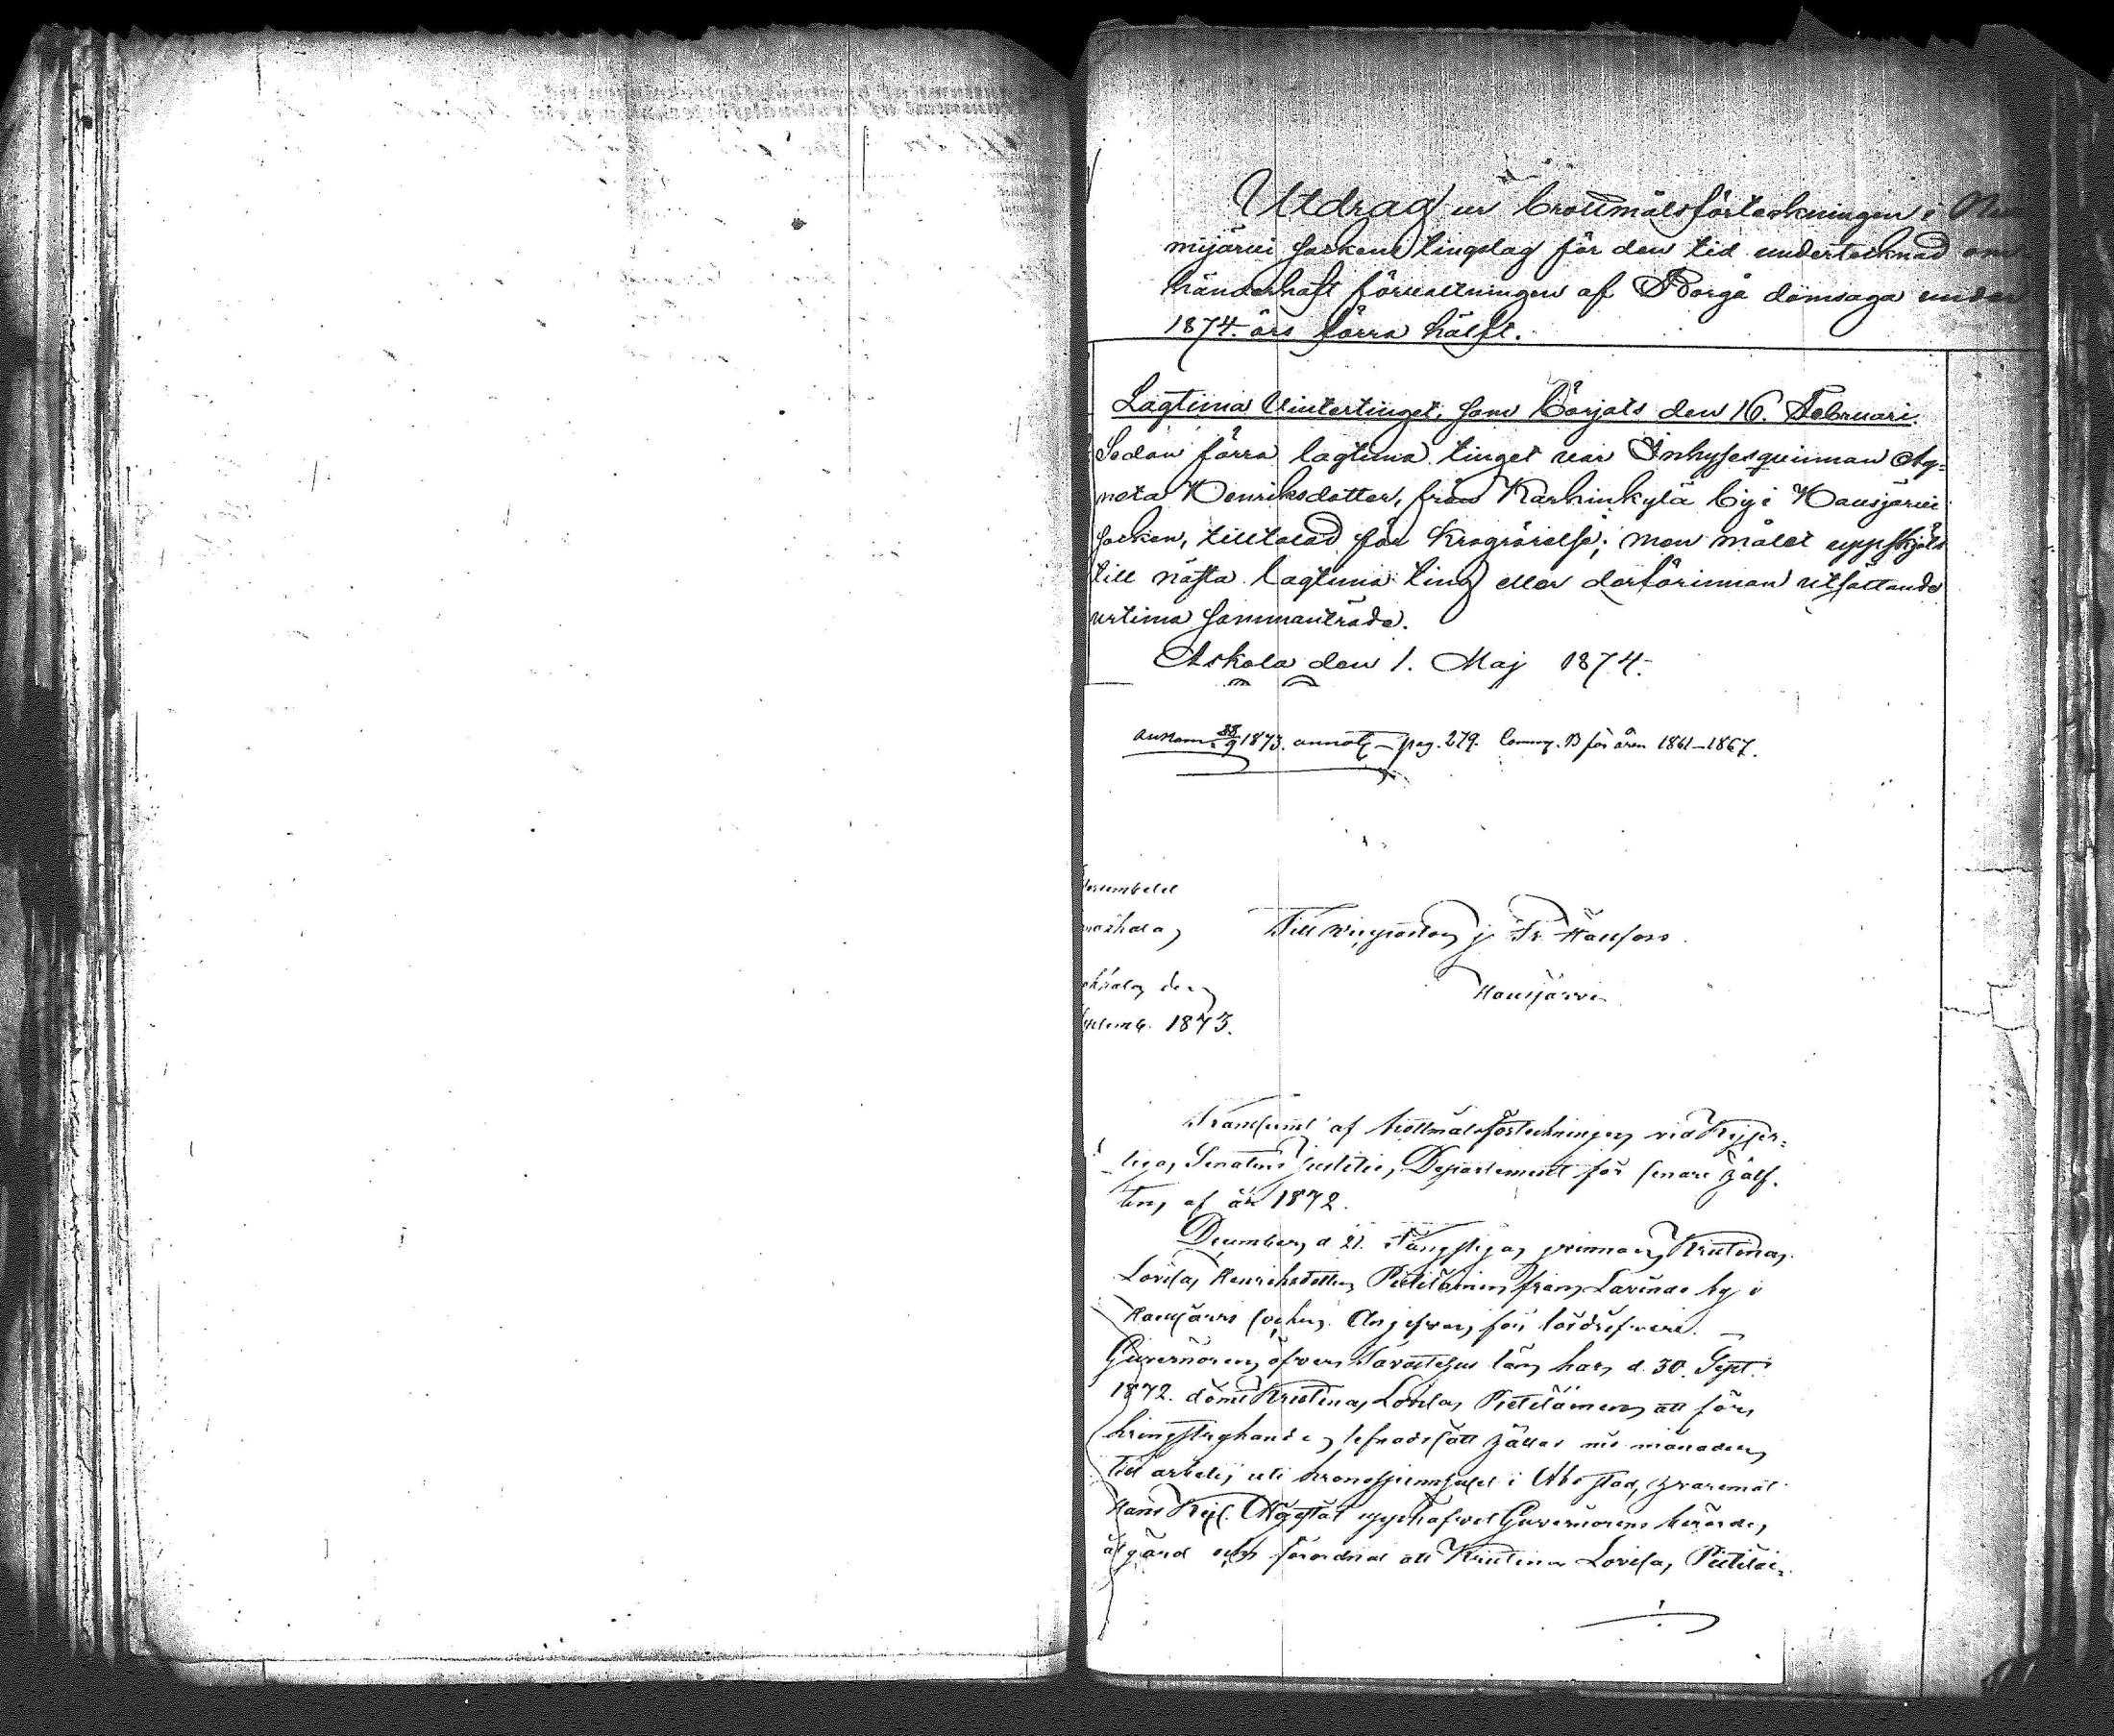 Utdrag ur brottmålsförteckningen i Nur
mijärvi sockens tingslag för den tid undertecknad om
händerhaft förvaltningen af Borgå domsaga under
1874 års förra hälft.
Lagtima Vintertinget, som börjats den 16. Februari.
Sedan förra lagtima tinget var Inhysesqvinnan Ag-
neta Henriksdotter, från Karhinkylä by i Hausjärvi
socken, tilltalad för krogrörelse; men målet uppskjöts
till nästa lagtima ting eller derförinnan utsättande
urtima sammanträde.
Askola den 1. Maj 1874.
Ankom 28/9 1873. annot. pag. 279. Comm. B för åren 1861–1867.
Till Vicepastorn J. Fr. Hällfors
Hausjärvi
1873.
Transsumt af brottmålsförteckningen vid Kejser-
liga Senatens Justitie Departement för senare hälf-
ten af år 1872.
December d. 21. qvinnan Kristina
Lovisa Henriksdotter Pietiläinen från Lavinde by i
Hausjärvi socken. Angifven för lösdrifveri.
Guvernören öfver Tavastehus län har d. 30. Sept.
1872. dömt Kristina Lovisa Pietiläinen att för
kringstrykande lefnadssätt hållas nio månaders
tid arbete uti kronospinnhuset i Åbo stad, hvaremot
Hans Kejs. Majestät upphäfvet Guvernörens berörde
åtgärd och förordnat att Kristina Lovisa Pietiläi-